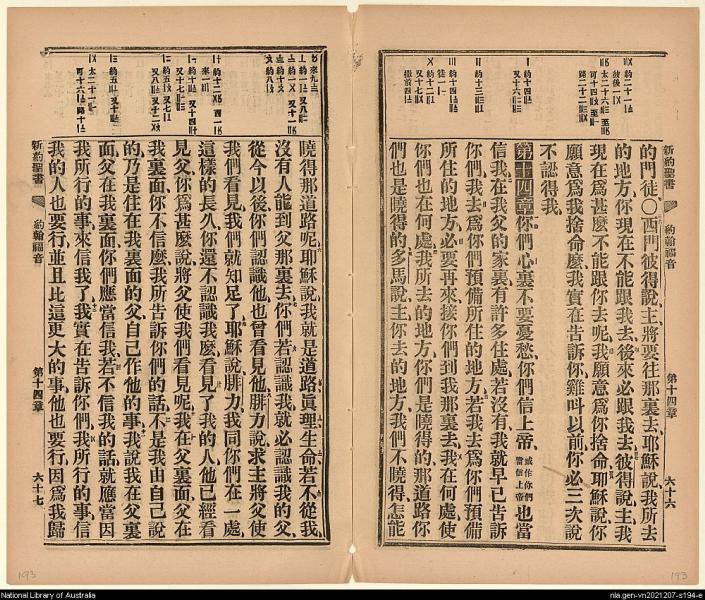 的門徒〇西門彼得說、主、將要往那裏去、耶穌說、我所去
的地方、你現在不能跟我去、後來必跟我去、彼得說、主、我
現在爲甚麽不能跟你去呢、我願意爲你捨命、耶穌說、你
願意爲我捨命麽、我實在告訴你、雞叫以前、你必三次說
不認得我。
第十四章 你們心裏不要憂愁、你們信上帝、或作你們當信上帝也當
信我、在我父的家裏有許多住處、若沒有、我就早已告訴
你們、我去爲你們預備所住的地方、若我去爲你們預備
所住的地方、必要再來接你們到我那裏去、我在何處、使
你們也在何處、我所去的地方、你們是曉得的、那道路你
們也是曉得的、多馬說、主、你去的地方、我們不曉得、怎能
新約聖書 約翰福音 第十四章 六十六
曉得那道路呢、耶穌說、我就是道路眞理生命、若不從我、
沒有人能到父那裏去、你們若認識我、就必認識我的父、
從今以後、你們認識他、也曾看見他、腓力說、求主將父使
我們看見、我們就知足了、耶穌說、腓力、我同你們在一處、
這樣的長久、你還不認識我麽、看見了我的人、他已經看
見父、你爲甚麽說將父使我們看見呢、我在父裏面、父在
我裏面、你不信麽、我所告訴你們的話、不是我由自己說
的、乃是住在我裏面的父、自己作他的事、我說我在父裏
面、父在我裏面、你們應當信我、若不信我的話、就應當因
我所行的事來信我了、我實在告訴你們、我所行的事、信
我的人也要行、並且比這更大的事、他也要行、因爲我歸
新約聖書 約翰福音 第十四章 六十七
193
193
National Library of Australia
nla.gen-vn2021207-s194-e